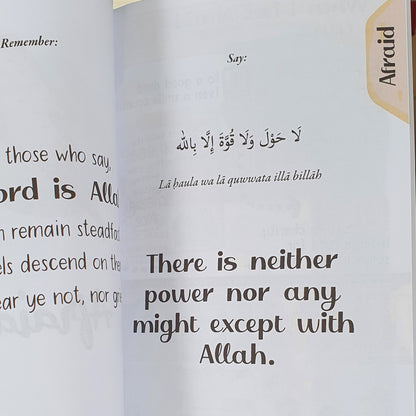 Remember:
those who say,
ord is Alla
remain steadfa
els descend on the
ear ye not, nor gr
Afraid
Say:
لَا حَوْلَ وَلَا قُوَّةَ إِلَّا بِاللّٰه
Lā ḥaula wa lā quwwata illā billāh
There is neither
power nor any
might except with
Allah.